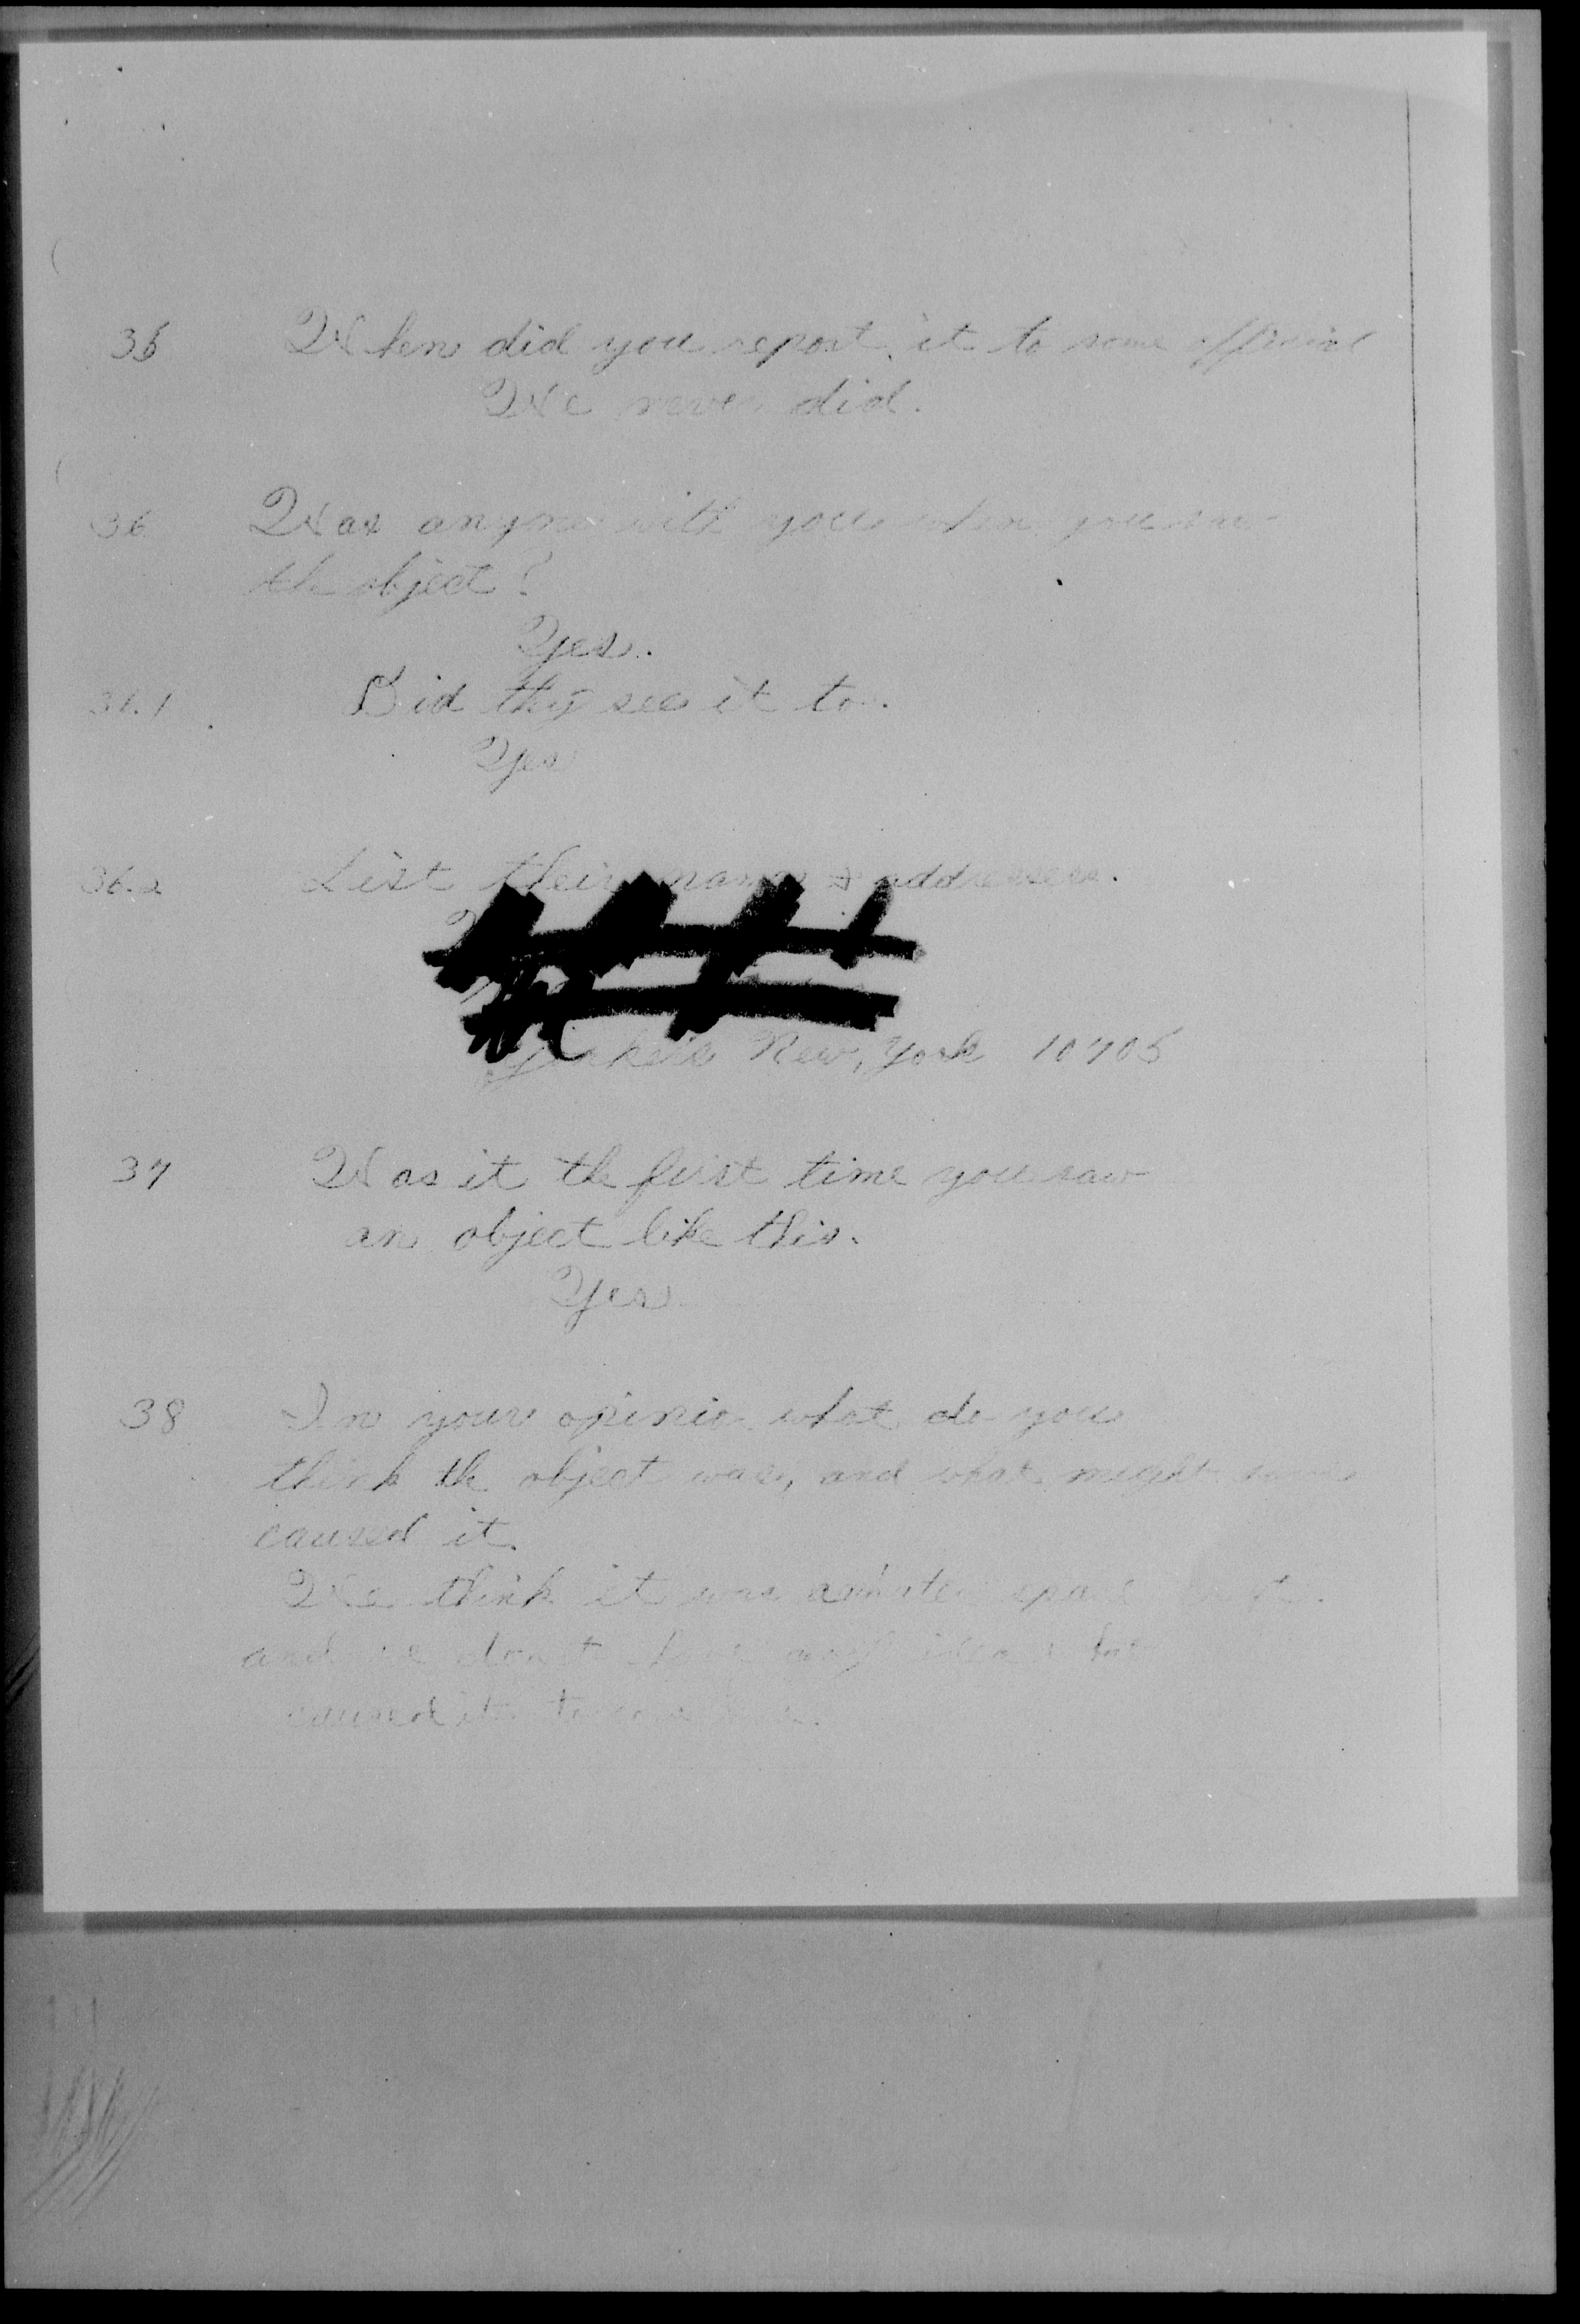 35 When did you report it to some official
We never did.
36 Was anyone with you when you saw
the object?
Yes.
36.1 Did they see it too.
Yes
36.2 List their names & addresses.
Yonkers New, York 10705
37 Was it the first time you saw
an object like this.
Yes
38 In your opinion what do you
think the object was, and what might have
caused it.
We think it was space
and we don't have any idea what
caused it to